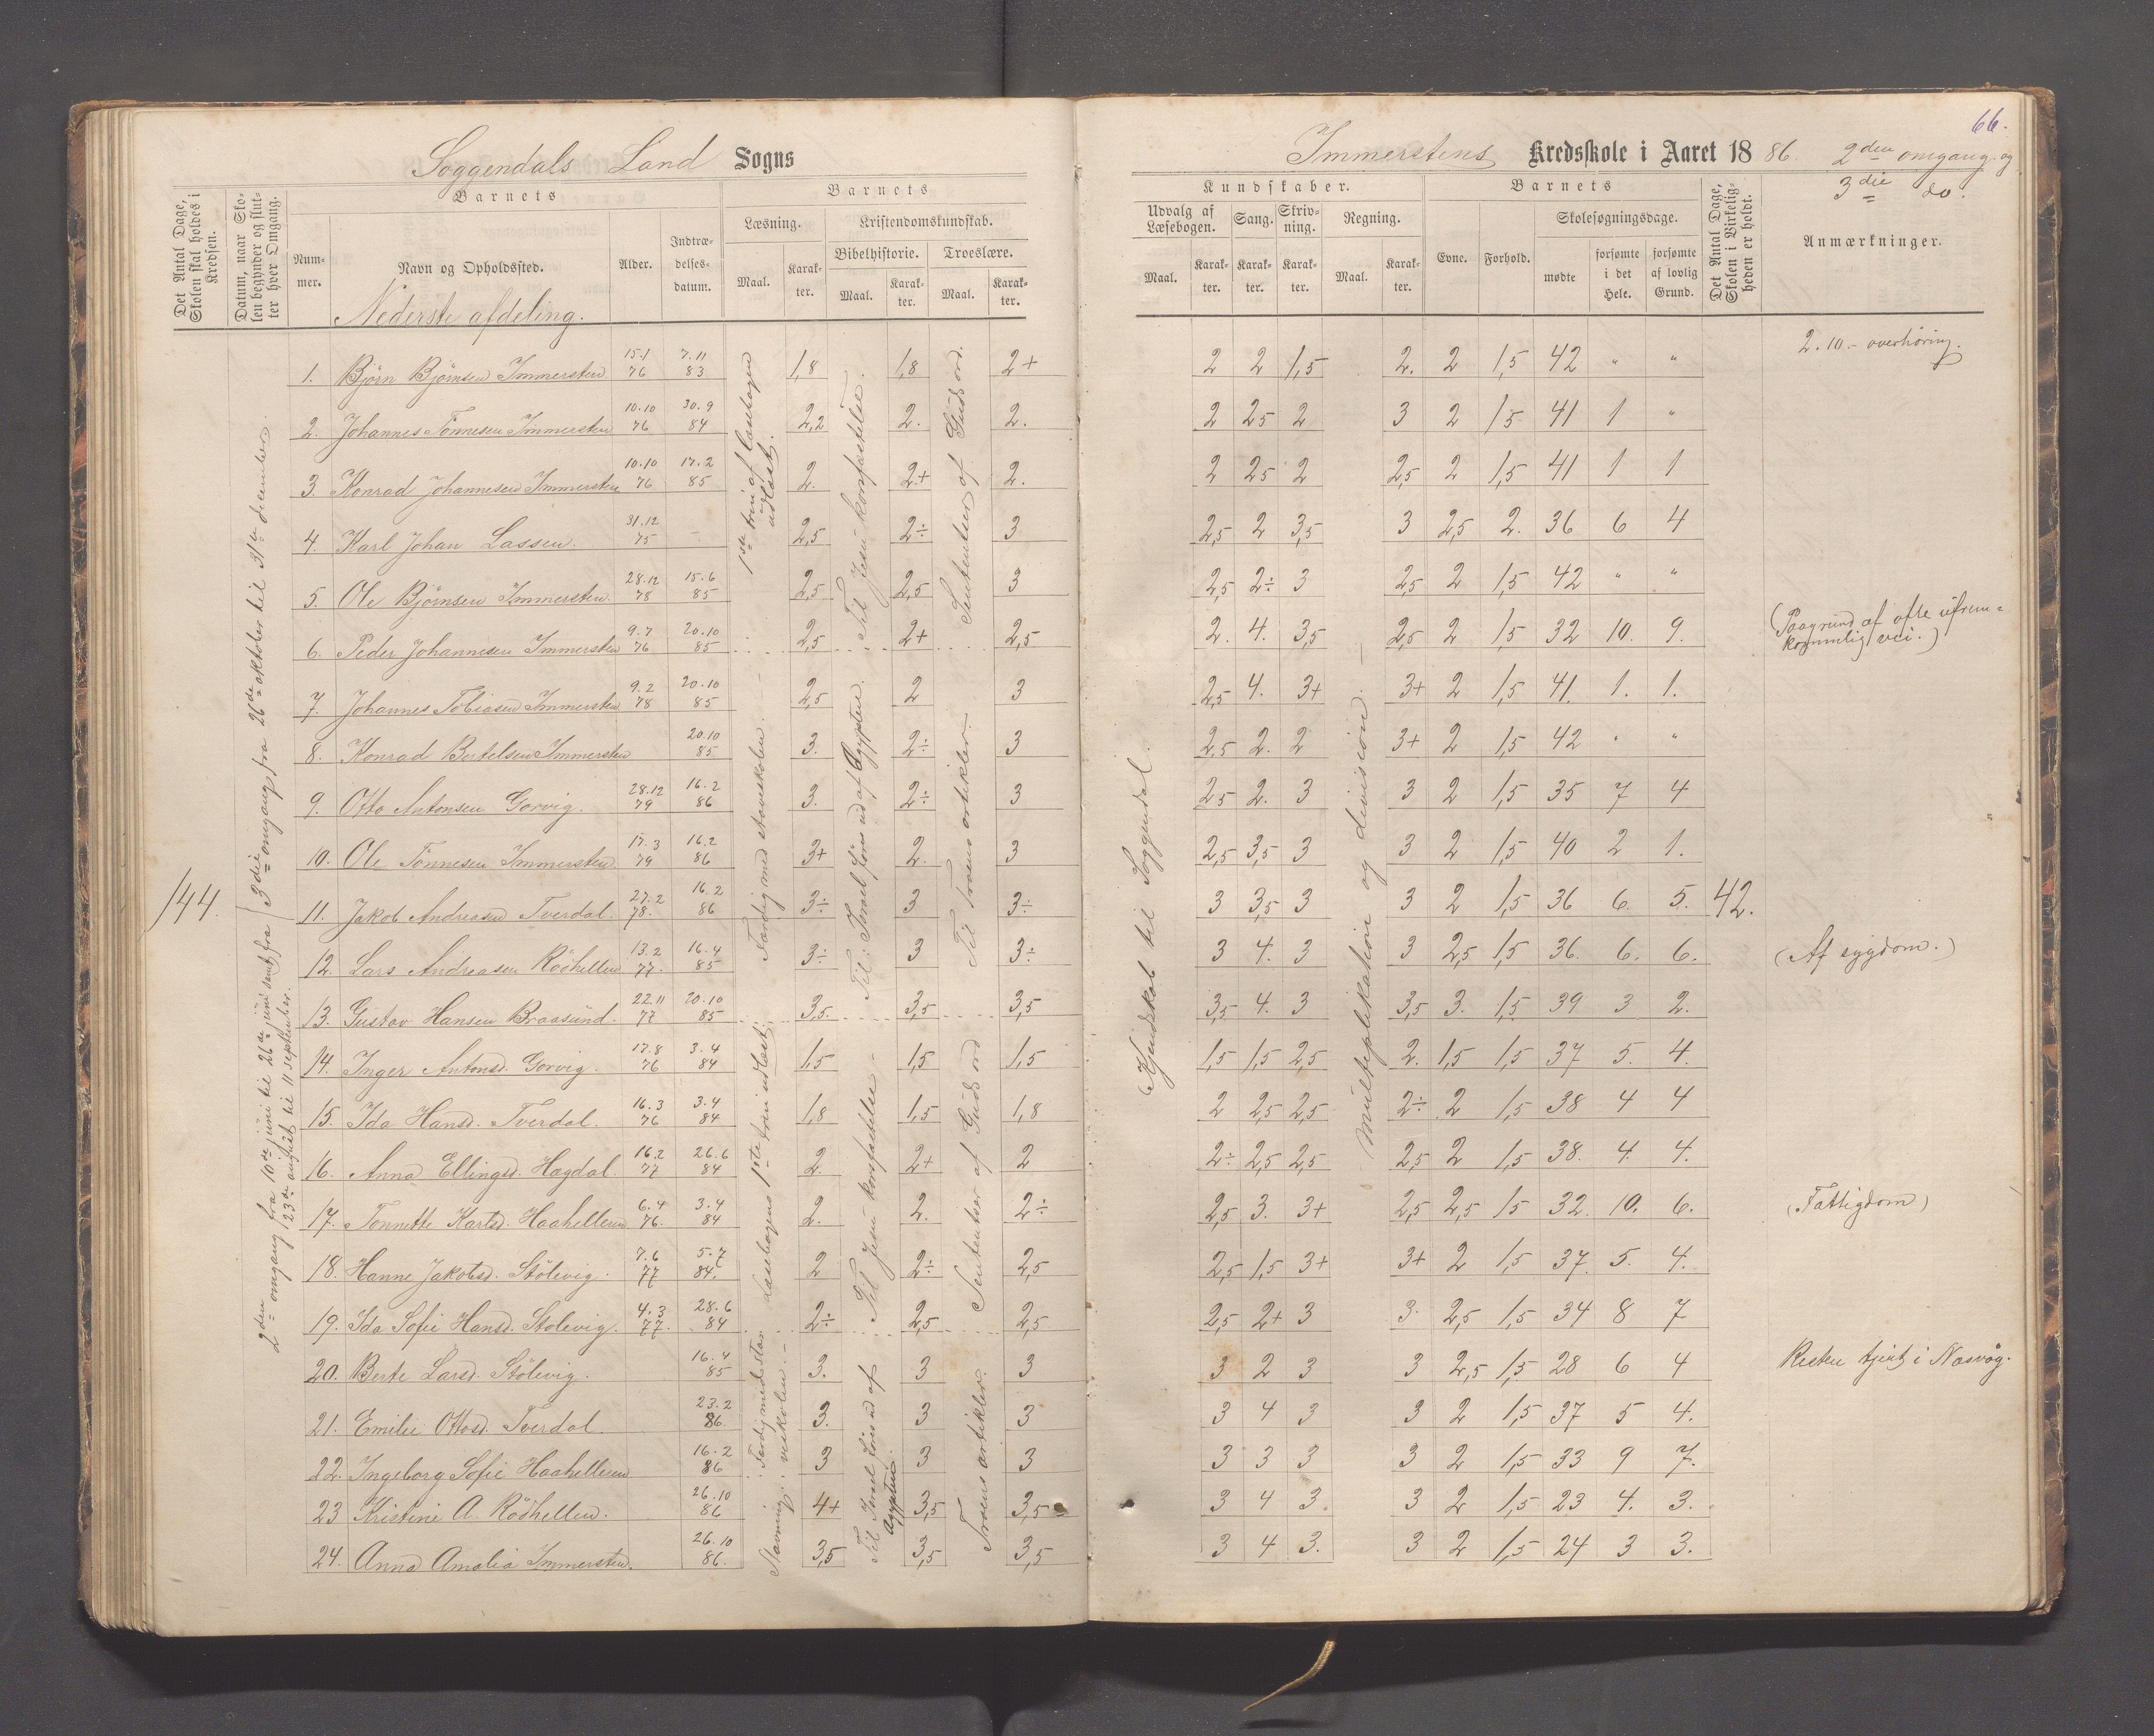 66.
Soggendals Land Sogns
Immerstens Kredsskole i Aaret 1886. 2den omgang og
3die do.
Det Antal Dage, Skolen skal holdes i Kredsen.
Datum, naar Skolen begynder og slutter hver Omgang.
Barnets
Nummer.
Navn og Opholdssted.
Alder.
Indtrædelsesdatum.
Barnets
Læsning.
Maal.
Karakter.
Kristendomskundskab.
Bibelhistorie.
Maal.
Karakter.
Troeslære.
Maal.
Karakter.
Kundskaber.
Udvalg af Læsebogen.
Maal.
Karakter.
Sang.
Karakter.
Skrivning.
Karakter.
Regning.
Maal.
Karakter.
Barnets
Evne.
Forhold.
Skolesøgningsdage.
mødte
forsømte i det Hele.
forsømte af lovlig Grund.
Det Antal Dage, Skolen i Virkeligheden er holdt.
Anmærkninger.
Nederste afdeling.
144.
2den omgang fra 10de juni til 26de juni samt fra 23de august til 11 september.
3die omgang fra 26de oktober til 31te december.
1ste trin af læsebogen udlæst.
Færdig med staveskolen.
læsebogens 1ste trin udlæst.
Til Jesu korsfæstelse.
Til: Israel föres ud af Ægypten.
Til Jesu korsfæstelse
Til Israel föres ud af Ægypten.
Sentenser af Guds ord.
Til Troens artikler.
Sentenser af Guds ord
Troens artikler.
Kjendskab til Soggendal.
multiplikation og division.
42.
1. Björn Björnsen Immersten 15.1 76 7.11 83 1,8 1,8 2+ 2 2 1,5 2. 2 1,5 42 " " 2.10 - overhöring.
2. Johannes Tönnesen Immersten 10.10 76 30.9 84 2,2 2. 2. 2 25 2 3 2 1,5 41 1 "
3. Konrad Johannesen Immersten 10.10 76 17.2 85 2. 2+ 2. 2 25 2 2,5 2 1,5 41 1 1
4. Karl Johan Lassen. 31.12 75 - 2,5 2÷ 3 2,5 2 3,5 3 2,5 2. 36 6 4
5. Ole Björnsen Immersten. 28.12 78 15.6 85 2,5 2,5 3 2,5 2÷ 3 2,5 2 1,5 42 " "
6. Peder Johannesen Immersten 9.7 76 20.10 85 2,5 2+ 2,5 2. 4. 3,5 2,5 2 1,5 32 10. 9. (Paagrund af ofte ufremkommelig vei.)
7. Johannes Tobiasen Immersten 9.2 78 20.10 85 2,5 2 3 2,5 4. 3+ 3+ 2 1,5 41. 1. 1.
8. Konrad Bertelsen Immersten 20.10 85 3. 2÷ 3 2,5 2. 2 3+ 2 1,5 42 " "
9. Otto Antonsen Gorvig. 28.12 79 16.2 86 3. 2÷ 3 25 2. 3 3 2 1,5 35 7 4
10. Ole Tönnesen Immersten 17.3 79 16.2 86 3+ 2. 3 2,5 3,5 3 3 2 1,5 40 2 1.
11. Jakob Andreasen Tverdal. 27.2 78. 16.2 86 3÷ 3 3÷ 3 3,5 3 3 2 1,5 36 6. 5.
12. Lars Andreasen Rödhellen 13.2 77. 16.4 85 3÷ 3 3÷ 3 4. 3 3 2,5 1,5 36. 6. 6. (Af sygdom.)
13. Gustav Hansen Braasund. 22.11 77 20.10 85 3,5. 3,5 3,5 3,5 4. 3 3,5 3. 1,5 39 3 2.
14. Inger Antonsd. Gorvig. 17.8 76 3.4 84 1,5 1,5 1,5 1,5 1,5 2,5 2. 1,5 1,5 37 5. 4.
15. Ida Hansd. Tverdal. 16.3 76 3.4 84 1,8 1,5 1,8 2 2,5 2,5 2÷ 2 1,5 38 4 4
16. Anna Ellingsd. Hagdal. 16.2 77 26.6 84 2. 2+ 2 2÷ 2,5 2,5 2,5 2 1,5 38. 4. 4.
17. Tonnette Karlsd. Haahelleren 6.4 76. 3.4 84 2. 2. 2÷ 2,5 3. 3+ 2,5 2,5 1,5 32. 10. 6. (Fattigdom)
18. Hanne Jakobsd. Stölevig. 7.6 77 5.7 84. 2 2÷ 2,5 2,5 1,5 3+ 3+ 2 1,5 37. 5. 4.
19. Ida Sofie Hansd. Stölevig. 4.3 77. 28.6 84 2÷ 2,5 2,5 2,5 2+ 3 3. 2,5 1,5 34 8 7
20. Berte Larsd. Stölevig. 16.4 85 3. 3 3 3 2 3 3 2,5 1,5 28 6 4 Resten tjent i Nasvåg.
21. Emilie Ottosd. Tverdal. 23.2 86. 3. 3 3 3 4 3 3 2 1,5 37 5 4.
22. Ingeborg Sofie Haahelleren 16.2 86 3 3 3 3 3 3 3 2 1,5 33 9 7.
23 Kristine A. Rödhellen. 26.10 86 4+ 3,5 3,5 3 4 3. 3 2 1,5 23 4. 3.
24. Anna Amalia Immersten. 26.10 86. 3,5 3,5 3,5 3 4 3. 3 2 1,5 24 3 3.